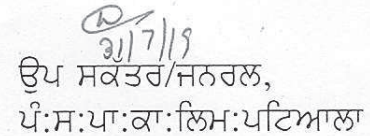 31/7/19
ਉਪ ਸਕੱਤਰ/ਜਨਰਲ,
ਪੰ:ਸ:ਪਾ:ਕਾ:ਲਿਮ:ਪਟਿਆਲਾ